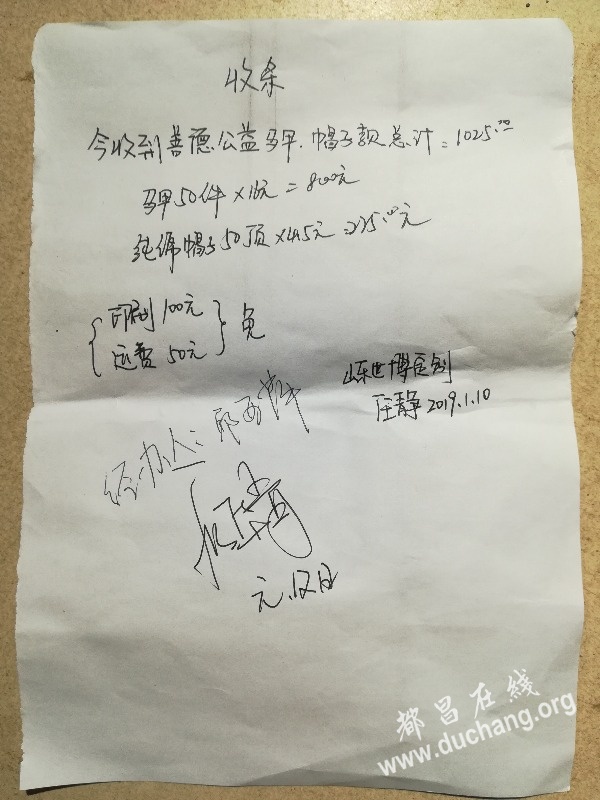 收条
今收到善德公益马甲、帽子款总计=1025.00
马甲50件×16元=800元
纯绵帽子50顶×4.5元=225.00元
印刷100元
运费50元
免
山东世博
2019.1.10
经办人:
元.12日
都昌在线
www.duchang.org